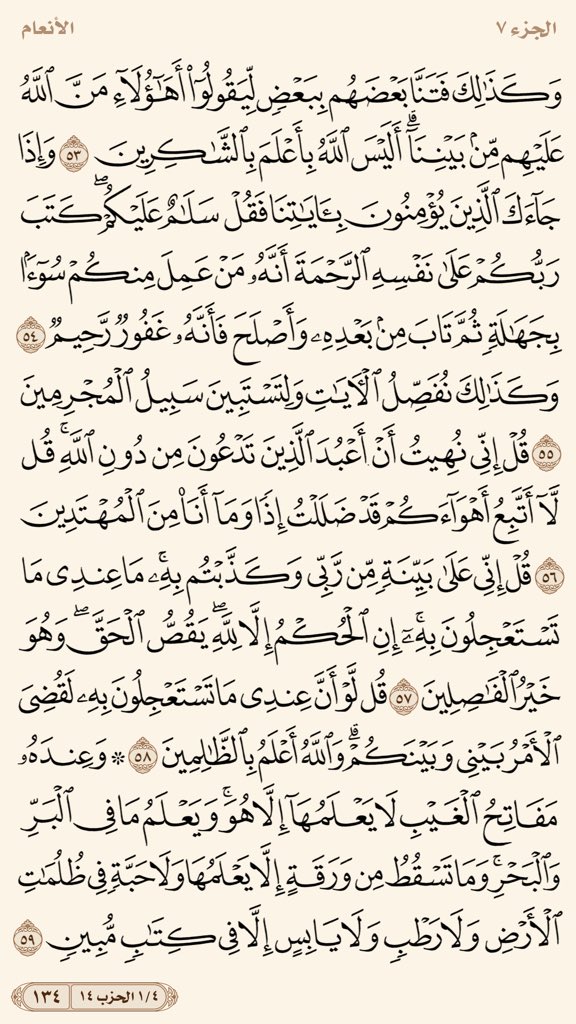 الجزء ٧
الأنعام
وَكَذَٰلِكَ فَتَنَّا بَعْضَهُم بِبَعْضٍ لِّيَقُولُوٓا۟ أَهَٰٓؤُلَآءِ مَنَّ ٱللَّهُ
عَلَيْهِم مِّنۢ بَيْنِنَآ ۗ أَلَيْسَ ٱللَّهُ بِأَعْلَمَ بِٱلشَّٰكِرِينَ ٥٣ وَإِذَا
جَآءَكَ ٱلَّذِينَ يُؤْمِنُونَ بِـَٔايَٰتِنَا فَقُلْ سَلَٰمٌ عَلَيْكُمْ ۖ كَتَبَ
رَبُّكُمْ عَلَىٰ نَفْسِهِ ٱلرَّحْمَةَ أَنَّهُۥ مَنْ عَمِلَ مِنكُمْ سُوٓءًۢا
بِجَهَٰلَةٍ ثُمَّ تَابَ مِنۢ بَعْدِهِۦ وَأَصْلَحَ فَأَنَّهُۥ غَفُورٌ رَّحِيمٌ ٥٤
وَكَذَٰلِكَ نُفَصِّلُ ٱلْـَٔايَٰتِ وَلِتَسْتَبِينَ سَبِيلُ ٱلْمُجْرِمِينَ
٥٥ قُلْ إِنِّى نُهِيتُ أَنْ أَعْبُدَ ٱلَّذِينَ تَدْعُونَ مِن دُونِ ٱللَّهِ ۚ قُل
لَّآ أَتَّبِعُ أَهْوَآءَكُمْ قَدْ ضَلَلْتُ إِذًا وَمَآ أَنَا۠ مِنَ ٱلْمُهْتَدِينَ
٥٦ قُلْ إِنِّى عَلَىٰ بَيِّنَةٍ مِّن رَّبِّى وَكَذَّبْتُم بِهِۦ ۚ مَا عِندِى مَا
تَسْتَعْجِلُونَ بِهِۦٓ ۚ إِنِ ٱلْحُكْمُ إِلَّا لِلَّهِ ۖ يَقُصُّ ٱلْحَقَّ ۖ وَهُوَ
خَيْرُ ٱلْفَٰصِلِينَ ٥٧ قُل لَّوْ أَنَّ عِندِى مَا تَسْتَعْجِلُونَ بِهِۦ لَقُضِىَ
ٱلْأَمْرُ بَيْنِى وَبَيْنَكُمْ ۗ وَٱللَّهُ أَعْلَمُ بِٱلظَّٰلِمِينَ ٥٨ ۞ وَعِندَهُۥ
مَفَاتِحُ ٱلْغَيْبِ لَا يَعْلَمُهَآ إِلَّا هُوَ ۚ وَيَعْلَمُ مَا فِى ٱلْبَرِّ
وَٱلْبَحْرِ ۚ وَمَا تَسْقُطُ مِن وَرَقَةٍ إِلَّا يَعْلَمُهَا وَلَا حَبَّةٍ فِى ظُلُمَٰتِ
ٱلْأَرْضِ وَلَا رَطْبٍ وَلَا يَابِسٍ إِلَّا فِى كِتَٰبٍ مُّبِينٍ ٥٩
١/٤ الحزب ١٤ ١٣٤